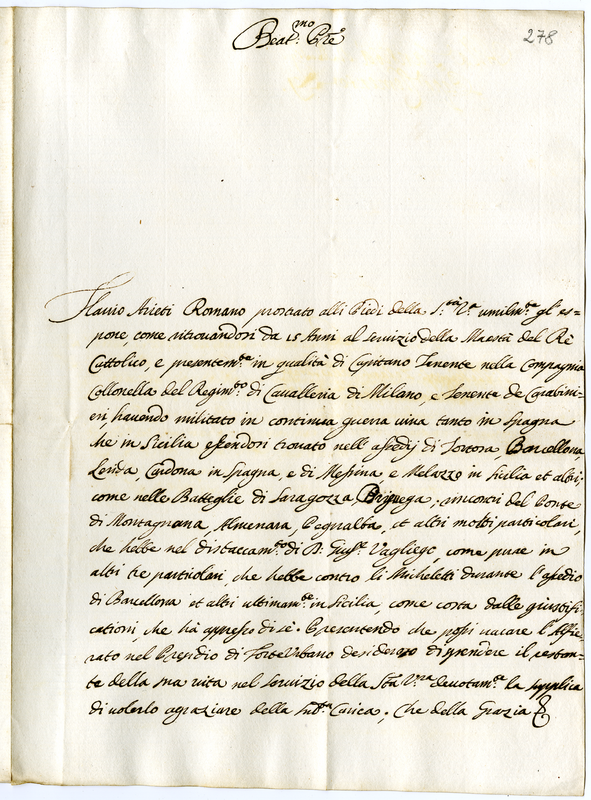 Beat.mo Pre
278
Flavio Arieti Romano prostrato alli Piedi della S.tà V.a umilm.te gl'es=
pone, come ritrovandosi da 15 Anni al servizio della Maestà del Rè
Cattolico, e presentem.te in qualità di Capitano Tenente nella Compagnia
Collonella del Regim.to di Cavalleria di Milano, e Tenente de Carabini=
eri, havendo militato in continua guerra viva tanto in Spagna
che in Sicilia essendosi trovato nell'assedij di Tortosa, Barcellona
Lerida, Cardona in Spagna, e di Messina e Melazzo in Sicilia et altri,
come nelle Battaglie di Saragozza, Briguega, rincorsi del Ponte
di Montagnana, Almenara, Pegnalba, et altri molti particolari,
che hebbe nel distaccam.to di D. Gius.e Vagliego come pure in
altri tre particolari, che hebbe contro li Micheletti durante l'assedio
di Barcellona et altri ultimam.te in Sicilia, come costa dalle giustifi=
cationi, che hà appresso di sè. Presentendo che possi vacare l'Alfie=
rato nel Presidio di Forte Urbano desideroso di spendere il restan=
te della sua vita nel servizio della S.tà V.ra devotam.te la supplica
di volerlo agraziare della sud.ta Carica; che della Grazia &